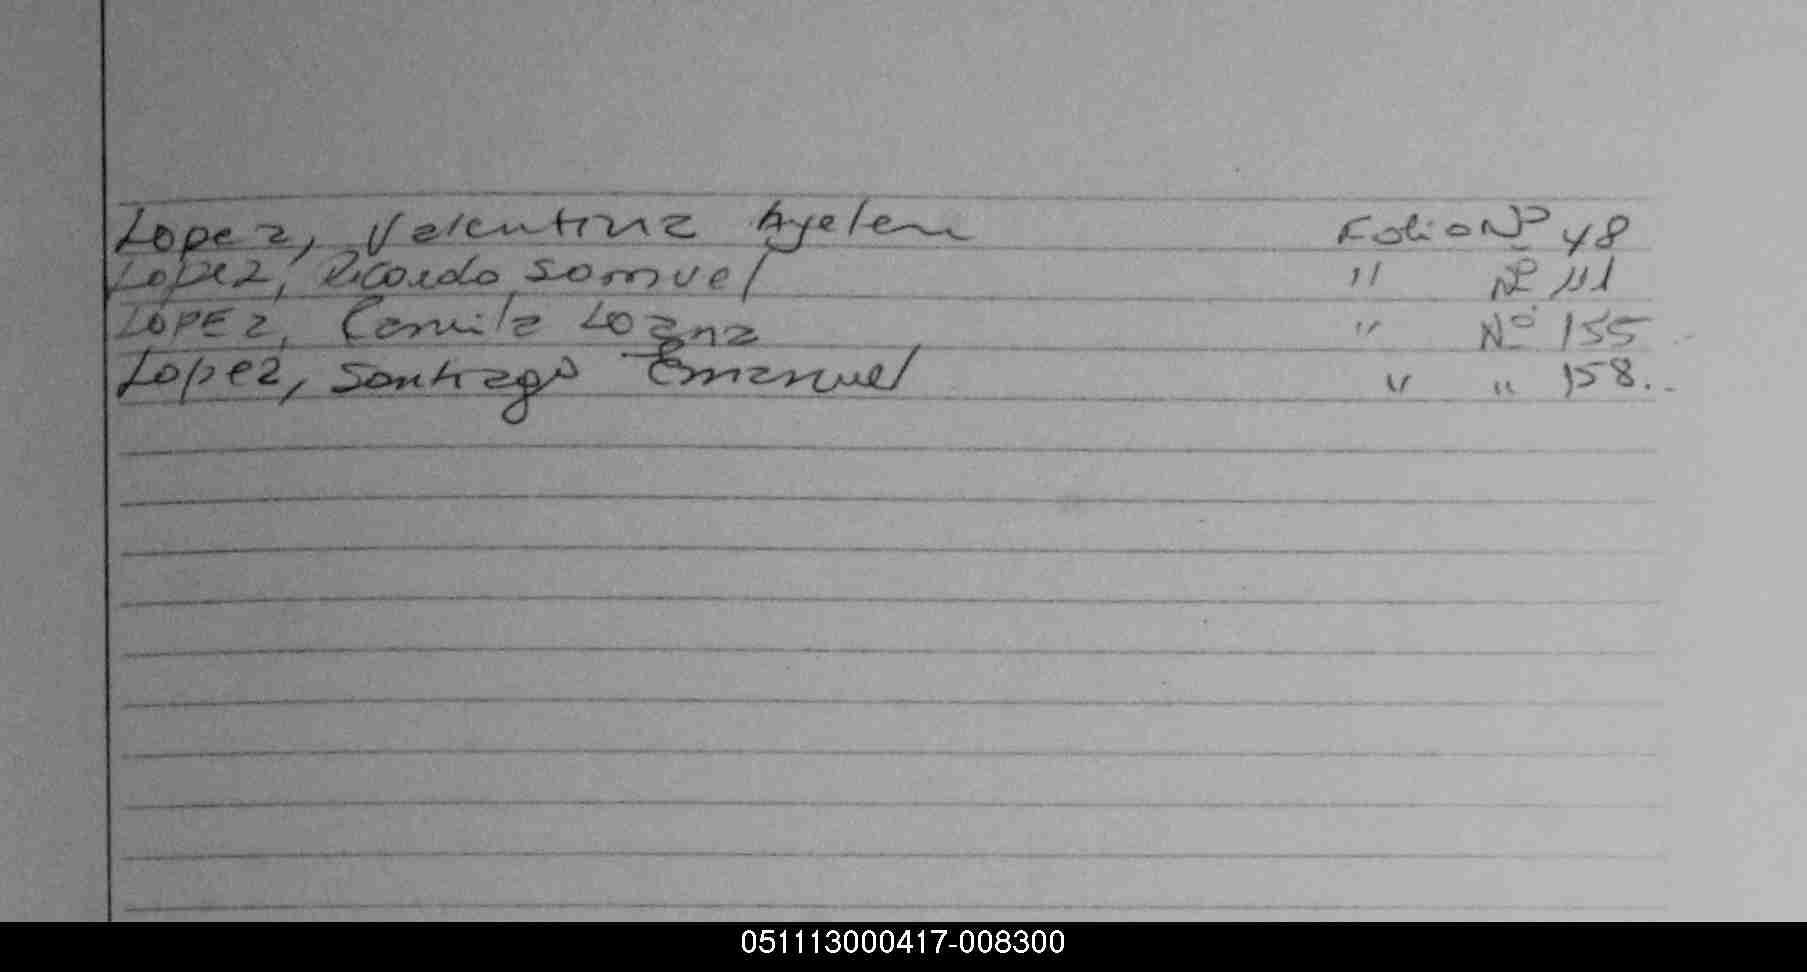 Lopez, Valentina Ayelen Folio Nº 48
Lopez, Ricardo Samuel " Nº 111
LOPEZ, Camila " Nº 155
Lopez, Santiago Emanuel " " 158..
051113000417-008300